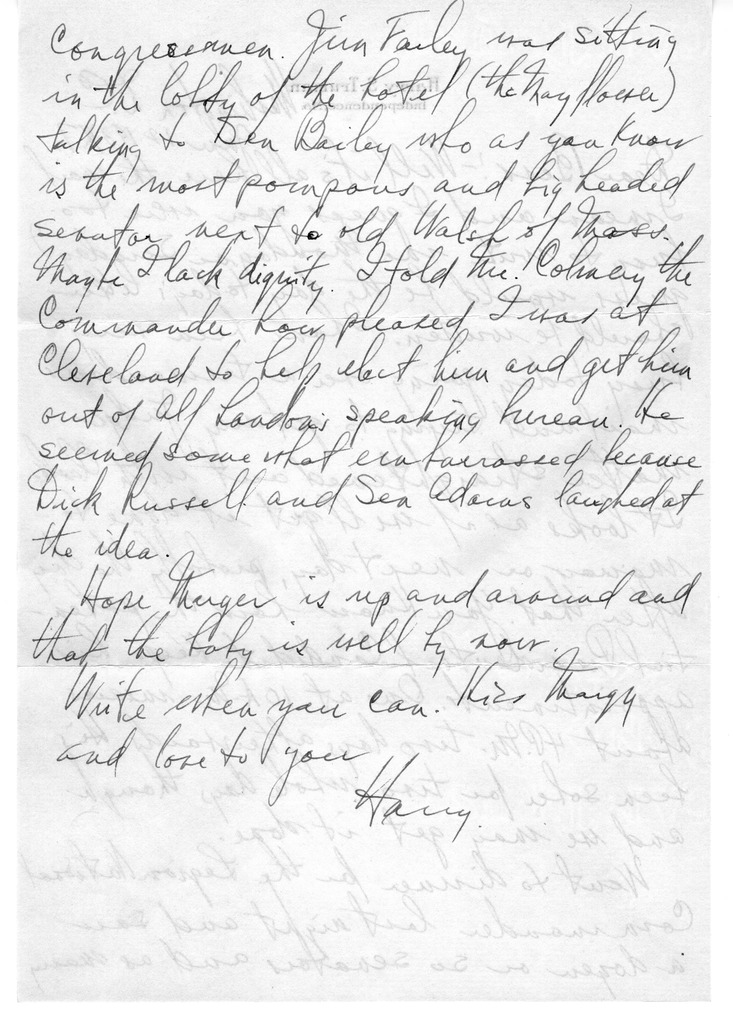 Congressmen. Jim Farley was sitting
in the lobby of the hotel (the Mayflower)
talking to Sen Bailey who as you know
is the most pompous and big headed
senator next to old Walsh of Mass.
Maybe I lack dignity. I told Mr. Colmery the
Commander how pleased I was at
Cleveland to help elect him and get him
out of Alf Landon's speaking bureau. He
seemed somewhat embarrassed because
Dick Russell and Sen Adams laughed at
the idea.
Hope Marger is up and around and
that the baby is well by now.
Write when you can. Kiss Margy
and love to you
Harry.